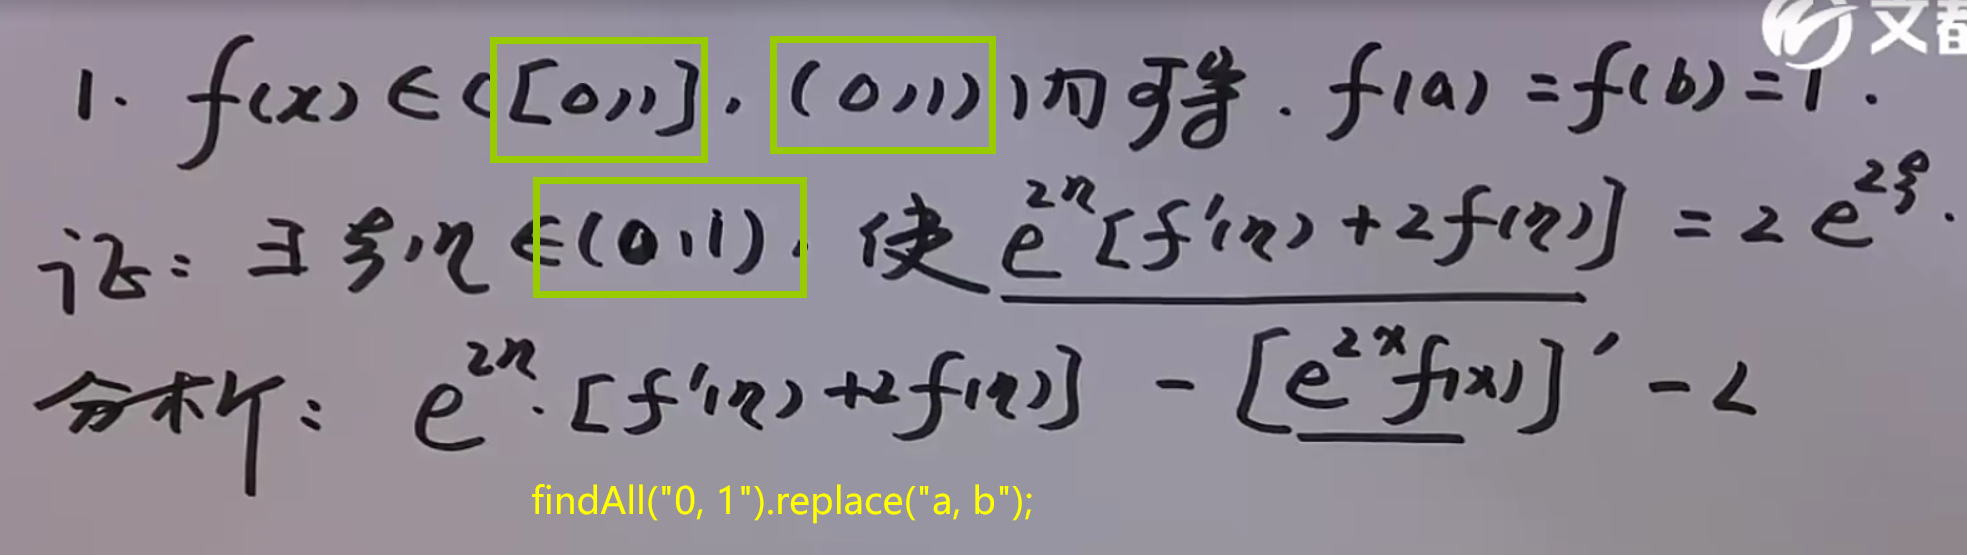 文都
1. f(x)∈C[0,1], (0,1)内可导. f(a)=f(b)=1.
证: ∃ξ,η∈(0,1), 使 e^{2η}[f'(η)+2f(η)]=2e^{2ξ}.
分析: e^{2η}·[f'(η)+2f(η)] - [e^{2x}f(x)]' - L
findAll("0, 1").replace("a, b");